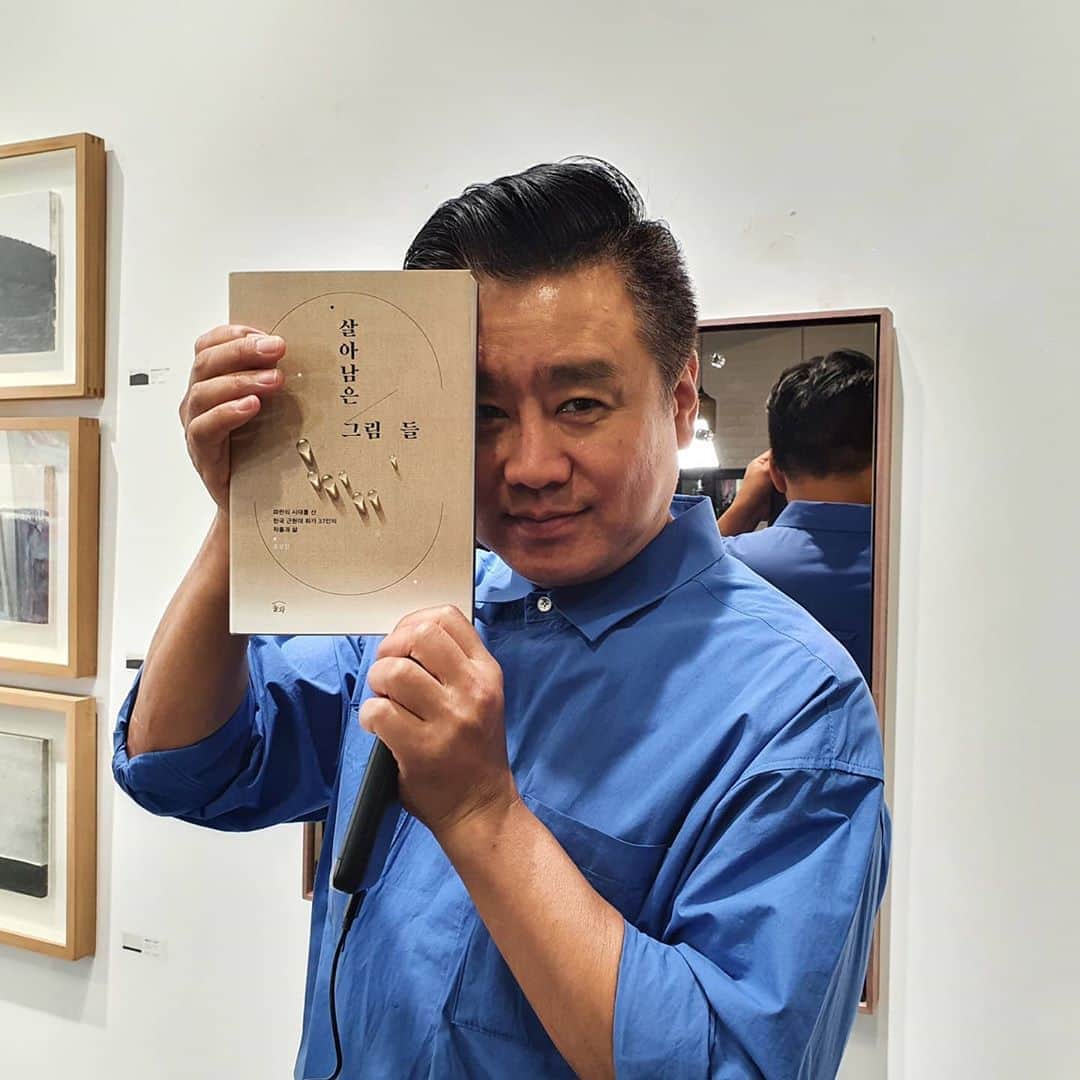 살아남은
그림 들
파란의 시대를 산
한국 근현대 화가 37인의
작품과 삶